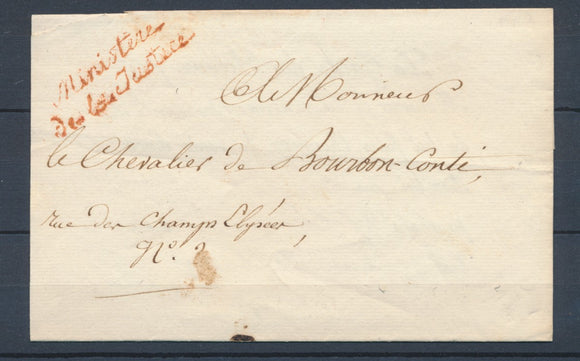 Ministère
de la Justice
A Monsieur
le Chevalier de Bourbon-Conti,
rue des Champs Elysées,
N.º 2